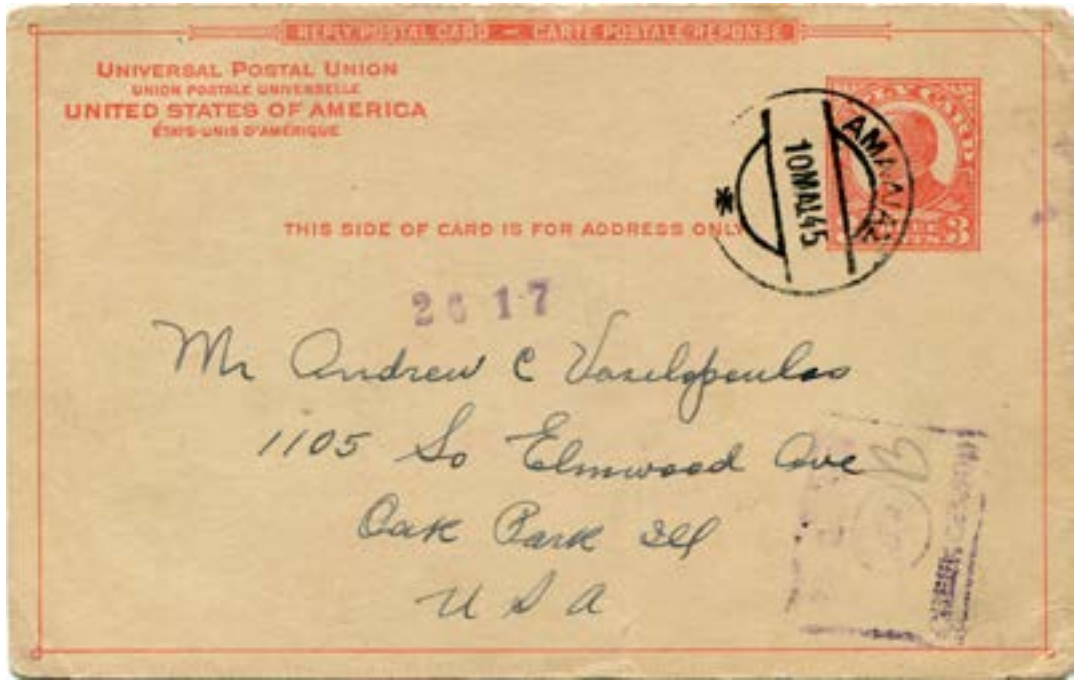 REPLY POSTAL CARD — CARTE POSTALE RÉPONSE
UNIVERSAL POSTAL UNION
UNION POSTALE UNIVERSELLE
UNITED STATES OF AMERICA
ÉTATS-UNIS D'AMÉRIQUE
10 MAI 45
3
THIS SIDE OF CARD IS FOR ADDRESS ONLY
26 17
Mr Andrew C Vasilopoulos
1105 So Elmwood Ave
Oak Park Ill
U S A
B